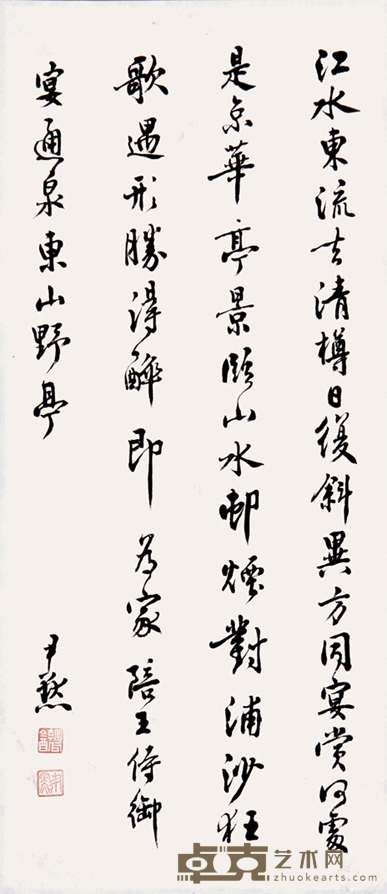 江水東流去清樽日復斜異方同宴賞何處
是京華亭景臨山水邨煙對浦沙狂
歌遇形勝得醉即為家陪王侍御
宴通泉東山野亭
尹默
卓克艺术网
zhuokearts.com